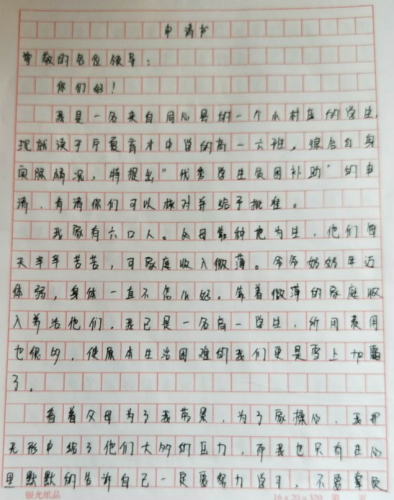 申请书
尊敬的各位领导：
你们好！
我是一名来自同心县的一个小村庄的学生，
现就读于育才中学的高一六班，综合自身
实际情况，特提出“优秀学生费用补助”的申
请，希望你们可以核对并给予批准。
我家有六口人。父母靠种地为生，他们每
天辛辛苦苦，可家庭收入微薄。爷爷奶奶年迈
体弱，身体一直不怎么好。靠着微薄的家庭收
入养活他们，我已是一名高一学生，所用费用
也很多，使原本生活困难的我们更是雪上加霜
了。
看着父母为了我劳累，为了家操心，我
无形中给了他们大的压力，而我也只有在心
里默默的告诉自己一定要努力学习，不要辜负
银光纸品
16×20=320